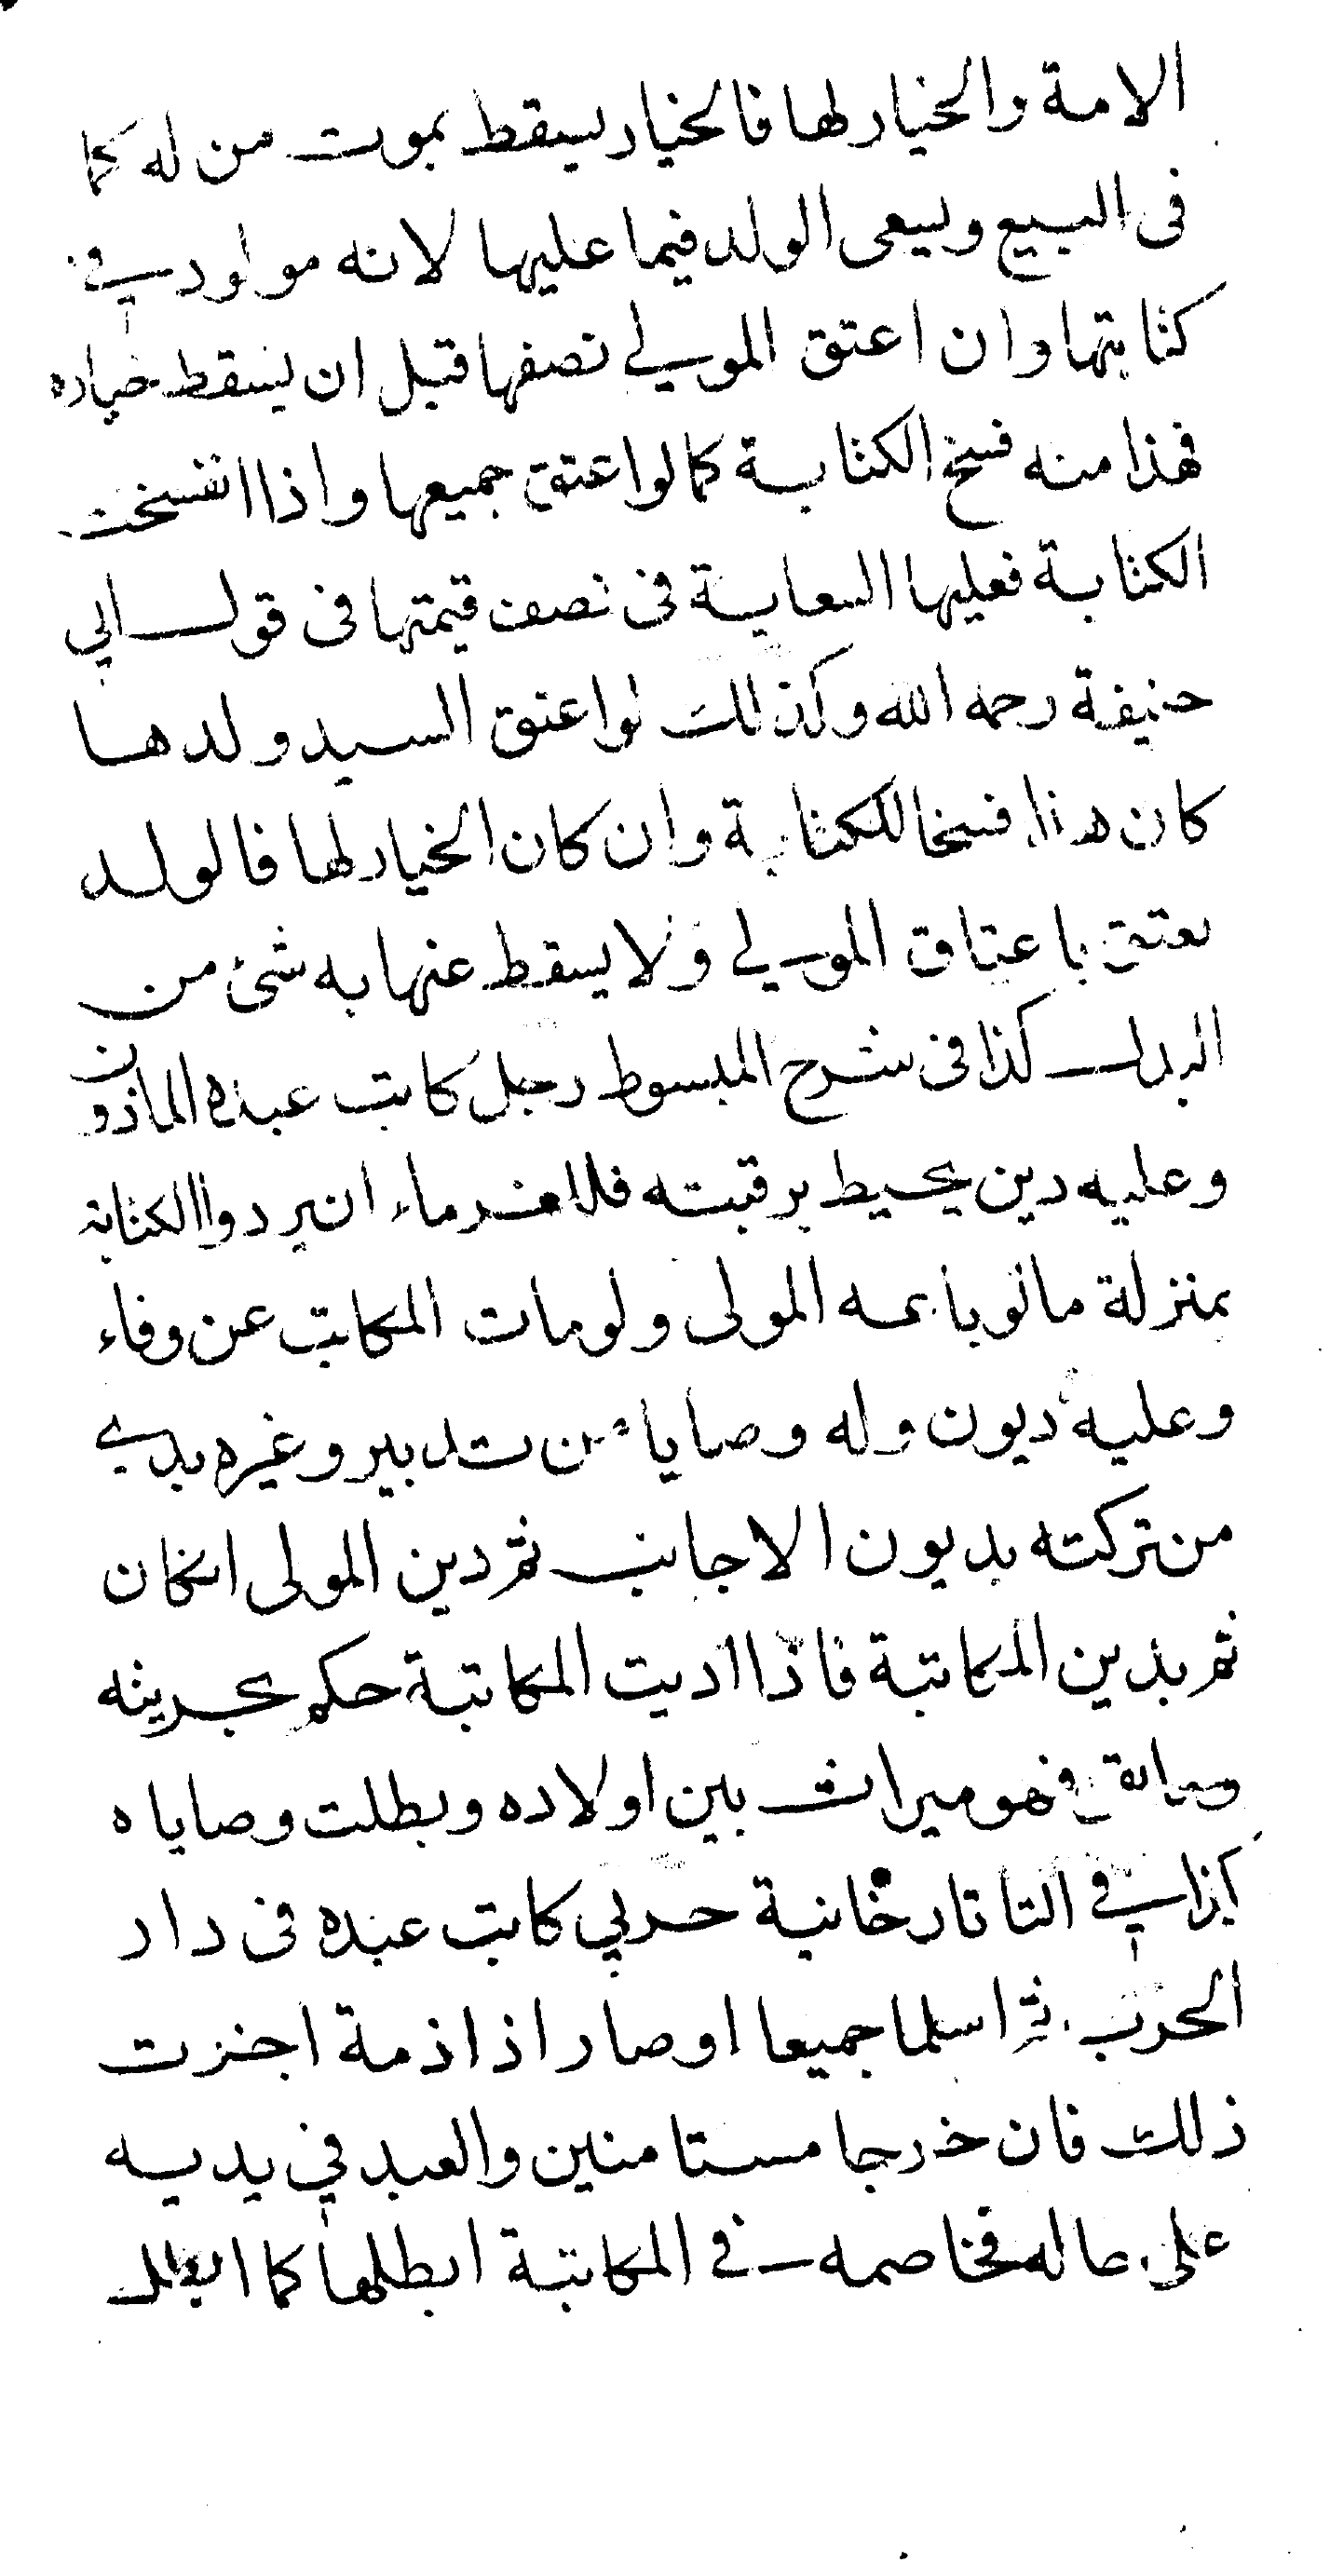 الامة والخيار لها فالخيار يسقط بموت من له كما
فى البيع ويسعى الولد فيما عليها لانه مولود في
كتابتها وان اعتق المولي نصفها قبل ان يسقط خياره
فهذا منه فسخ الكتابة كما لو اعتق جميعها واذا انفسخت
الكتابة فعليها السعاية فى نصف قيمتها فى قول ابي
حنيفة رحمه الله وكذلك لو اعتق السيد ولدها
كان هذا فسخا للكتابة وان كان الخيار لها فالولد
يعتق باعتاق المولي ولا يسقط عنها به شئ من
البدل كذا فى شرح المبسوط رجل كاتب عبده الماذون
وعليه دين يحيط برقبته فللغرماء ان يردوا الكتابة
بمنزلة ما لو باعه المولى ولو مات المكاتب عن وفاء
وعليه ديون وله وصايا من تدبير وغيره بدي
من تركته بديون الاجانب ثم دين المولى انكان
ثم بدين المكاتبة فاذا اديت المكاتبة حكم بحريته
وما بقى فهو ميراث بين اولاده وبطلت وصاياه
كذا في التاتارخانية حربي كاتب عبده فى دار
الحرب ثم اسلما جميعا او صارا ذا ذمة اجزت
ذلك فان خرجا مستامنين والعبد في يديه
على حاله فخاصمه في المكاتبة ابطلها كما ابطل